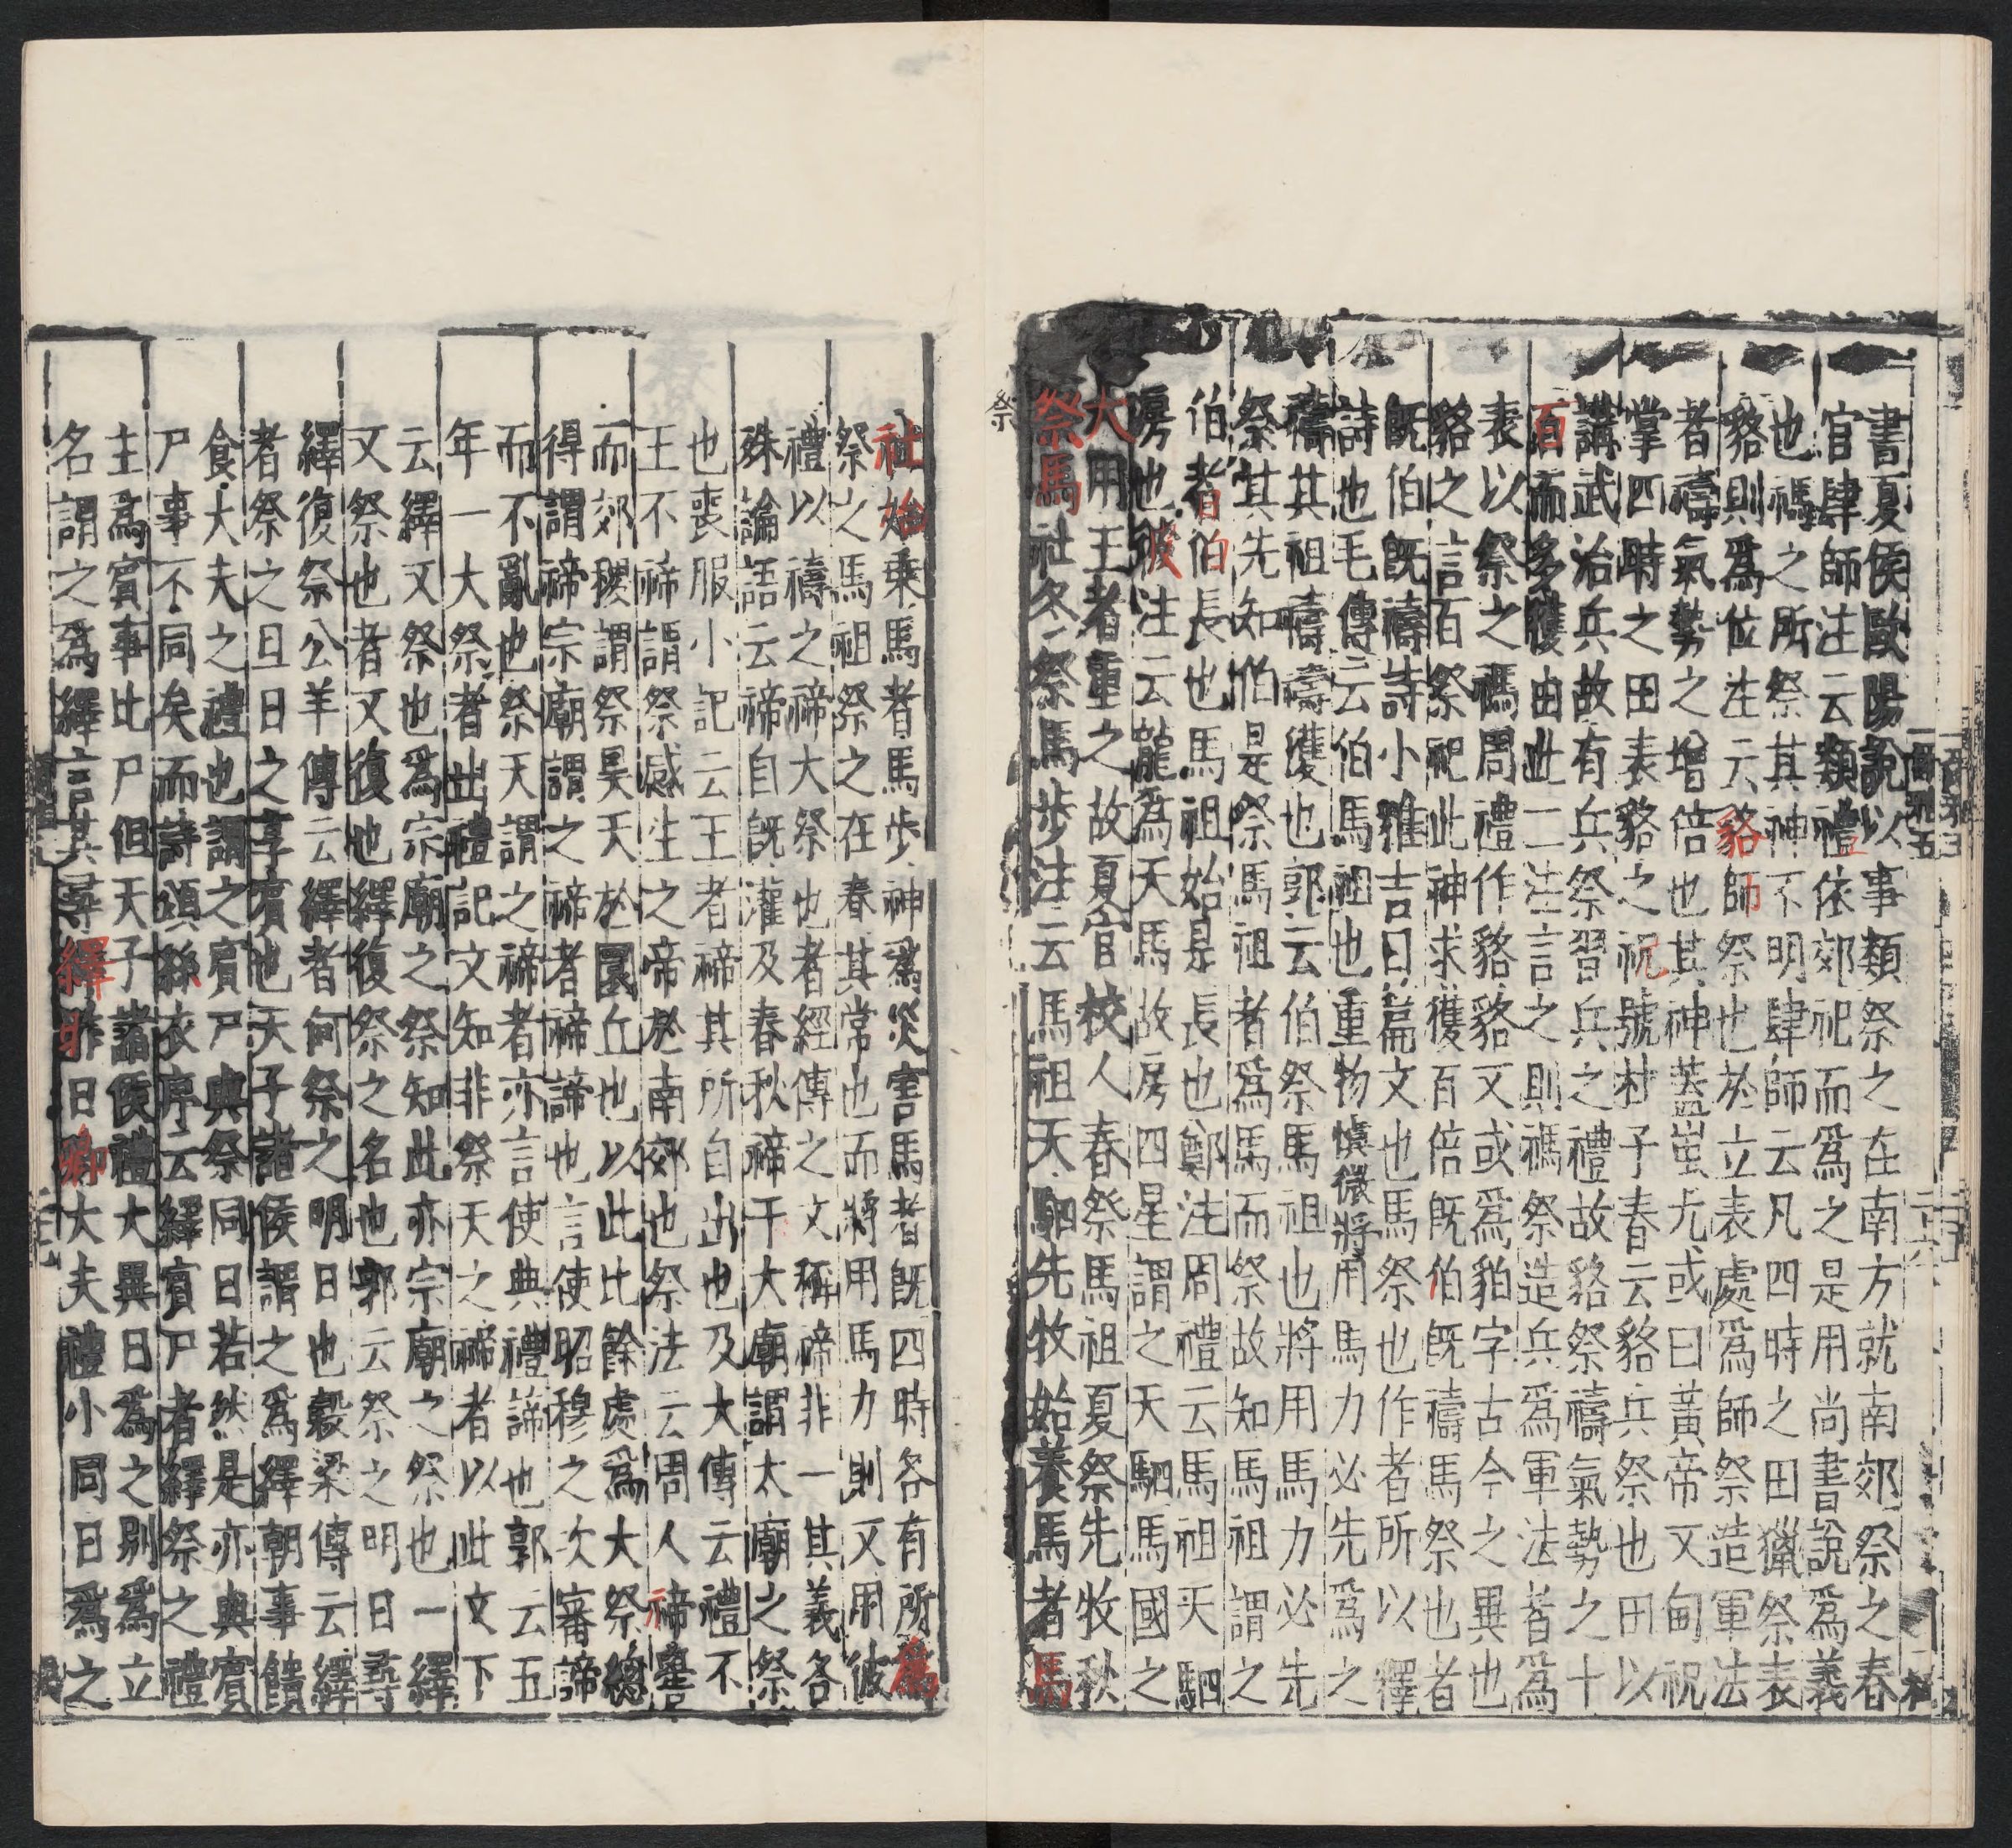 書夏侯歐陽說以事類祭之在南方就南郊祭之春
官肆師注云類禮依郊祀而爲之是用尚書說爲義
也禡之所祭其神不明肆師云凡四時之田獵祭表
貉則爲位注云貉師祭也於立表處爲師祭造軍法
者禱氣勢之增倍也其神蓋蚩尤或曰黃帝又甸祝
掌四時之田表貉之祝號杜子春云貉兵祭也田以
講武治兵故有兵祭習兵之禮故貉祭禱氣勢之十
百而多獲由此二注言之則禡祭造兵爲軍法者爲
表以祭之禡周禮作貉貉又或爲貊字古今之異也
貉之言百祭祀此神求獲百倍既伯既禱馬祭也者
既伯既禱詩小雅吉日篇文也馬祭也作者所以釋
詩也毛傳云伯馬祖也重物慎微將用馬力必先爲之
禱其祖禱禱獲也郭云伯祭馬祖也將用馬力必先
祭其先知伯是祭馬祖者爲馬而祭故知馬祖謂之
伯者伯長也馬祖始是長也鄭注周禮云馬祖天駟
房也彼注云龍爲天馬故房四星謂之天駟馬國之
大用王者重之故夏官校人春祭馬祖夏祭先牧秋
祭馬社冬祭馬步注云馬祖天駟先牧始養馬者馬
祭
社始乘馬者馬步神爲災害馬者既四時各有所爲
祭之馬祖祭之在春其常也而將用馬力則又用彼
禮以禱之禘大祭也者經傳之文稱禘非一其義各
殊論語云禘自既灌及春秋禘于大廟謂太廟之祭
也喪服小記云王者禘其所自出也及大傳云禮不
王不禘謂祭感生之帝於南郊也祭法云周人禘嚳
而郊稷謂祭昊天於圜丘也以此比餘處爲大祭總
得謂禘宗廟謂之禘者禘諦也言使昭穆之次審諦
而不亂也祭天謂之禘者亦言使典禮諦也郭云五
年一大祭者出禮記文知非祭天之禘者以此文下
云繹又祭也爲宗廟之祭知此亦宗廟之祭也一繹
又祭也者又復也繹復祭之名也郭云祭之明日尋
繹復祭公羊傳云繹者何祭之明日也穀梁傳云繹
者祭之旦日之享賓也天子諸侯謂之爲繹朝事饋
食大夫之禮也謂之賓尸與祭同日若然是亦與賓
尸事不同矣而詩頌絲衣序云繹賓尸者繹祭之禮
主爲賓事此尸但天子諸侯禮大異日爲之別爲立
名謂之爲繹言其尋繹昨日卿大夫禮小同日爲之